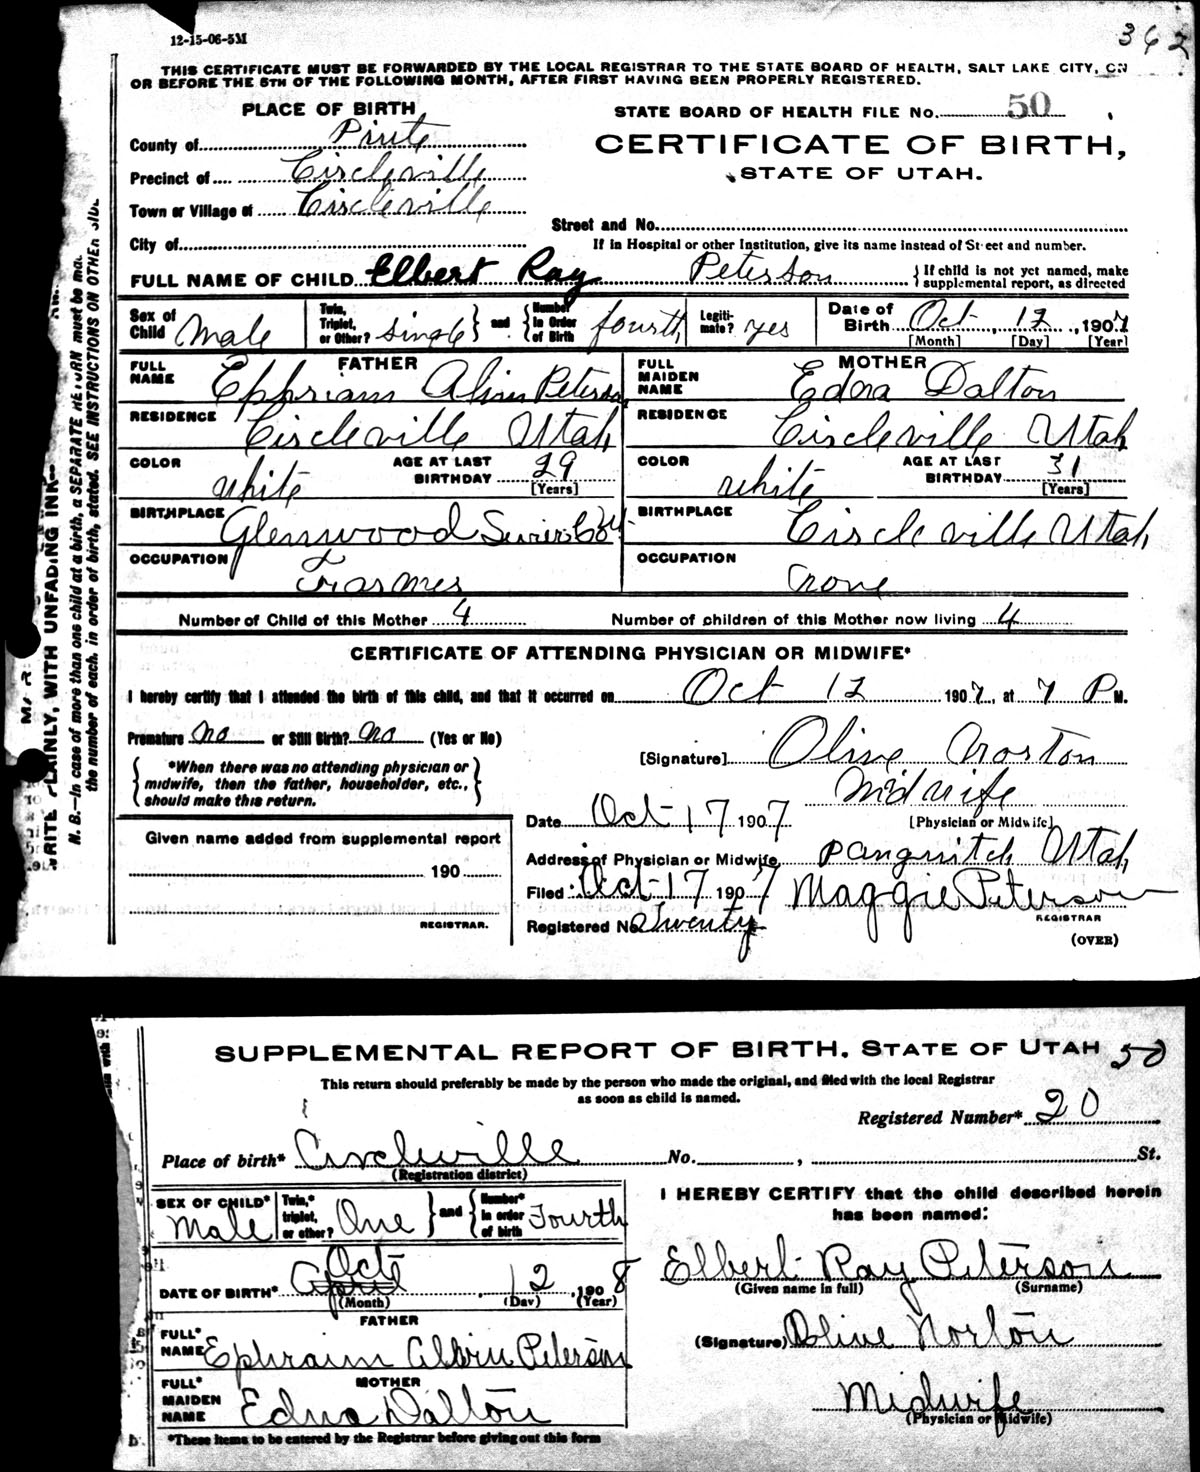 12-15-06-5M
362
THIS CERTIFICATE MUST BE FORWARDED BY THE LOCAL REGISTRAR TO THE STATE BOARD OF HEALTH, SALT LAKE CITY, ON
OR BEFORE THE 5TH OF THE FOLLOWING MONTH, AFTER FIRST HAVING BEEN PROPERLY REGISTERED.
PLACE OF BIRTH
STATE BOARD OF HEALTH FILE No. 50
County of Piute
CERTIFICATE OF BIRTH,
Precinct of Circleville
STATE OF UTAH.
Town or Village of Circleville
Street and No.
City of
If in Hospital or other Institution, give its name instead of Street and number.
FULL NAME OF CHILD Elbert Ray Peterson
If child is not yet named, make supplemental report, as directed
Sex of Child Male
Twin, Triplet, or Other? Single and Number in Order of Birth fourth
Legitimate? yes
Date of Birth Oct, 12, 1907
[Month] [Day] [Year]
FATHER
FULL NAME Ephriam Peterson
RESIDENCE Circleville Utah
COLOR white
AGE AT LAST BIRTHDAY 29
[Years]
BIRTHPLACE Glenwood Sevier Co
OCCUPATION Farmer
MOTHER
FULL MAIDEN NAME Edna Dalton
RESIDENCE Circleville Utah
COLOR white
AGE AT LAST BIRTHDAY 31
[Years]
BIRTHPLACE Circleville Utah
OCCUPATION None
Number of Child of this Mother 4
Number of children of this Mother now living 4
CERTIFICATE OF ATTENDING PHYSICIAN OR MIDWIFE*
I hereby certify that I attended the birth of this child, and that it occurred on Oct 12 1907, at 7 P M.
Premature no or Still Birth? no (Yes or No)
[Signature] Olive Norton
*When there was no attending physician or
midwife, then the father, householder, etc.,
should make this return.
Midwife
[Physician or Midwife]
Date Oct 17 1907
Given name added from supplemental report
190
REGISTRAR.
Address of Physician or Midwife Panguitch Utah
Filed Oct 17 1907 Maggie Peterson
REGISTRAR
Registered No Twenty
(OVER)
WRITE PLAINLY, WITH UNFADING INK
N. B.—In case of more than one child at a birth, a SEPARATE RETURN must be
the number of each, in order of birth, stated. SEE INSTRUCTIONS ON OTHER SIDE
SUPPLEMENTAL REPORT OF BIRTH. STATE OF UTAH 50
This return should preferably be made by the person who made the original, and filed with the local Registrar
as soon as child is named.
Registered Number* 20
Place of birth* Circleville No. , St.
(Registration district)
SEX OF CHILD* Male
Twin,* triplet, or other? One and Number* in order of birth Fourth
DATE OF BIRTH* April Oct 12, 1908
(Month) (Day) (Year)
FATHER
FULL* NAME Ephraim Albin Peterson
MOTHER
FULL* MAIDEN NAME Edna Dalton
*These items to be entered by the Registrar before giving out this form
I HEREBY CERTIFY that the child described herein
has been named:
Elbert Ray Peterson
(Given name in full) (Surname)
(Signature) Olive Norton
Midwife
(Physician or Midwife)